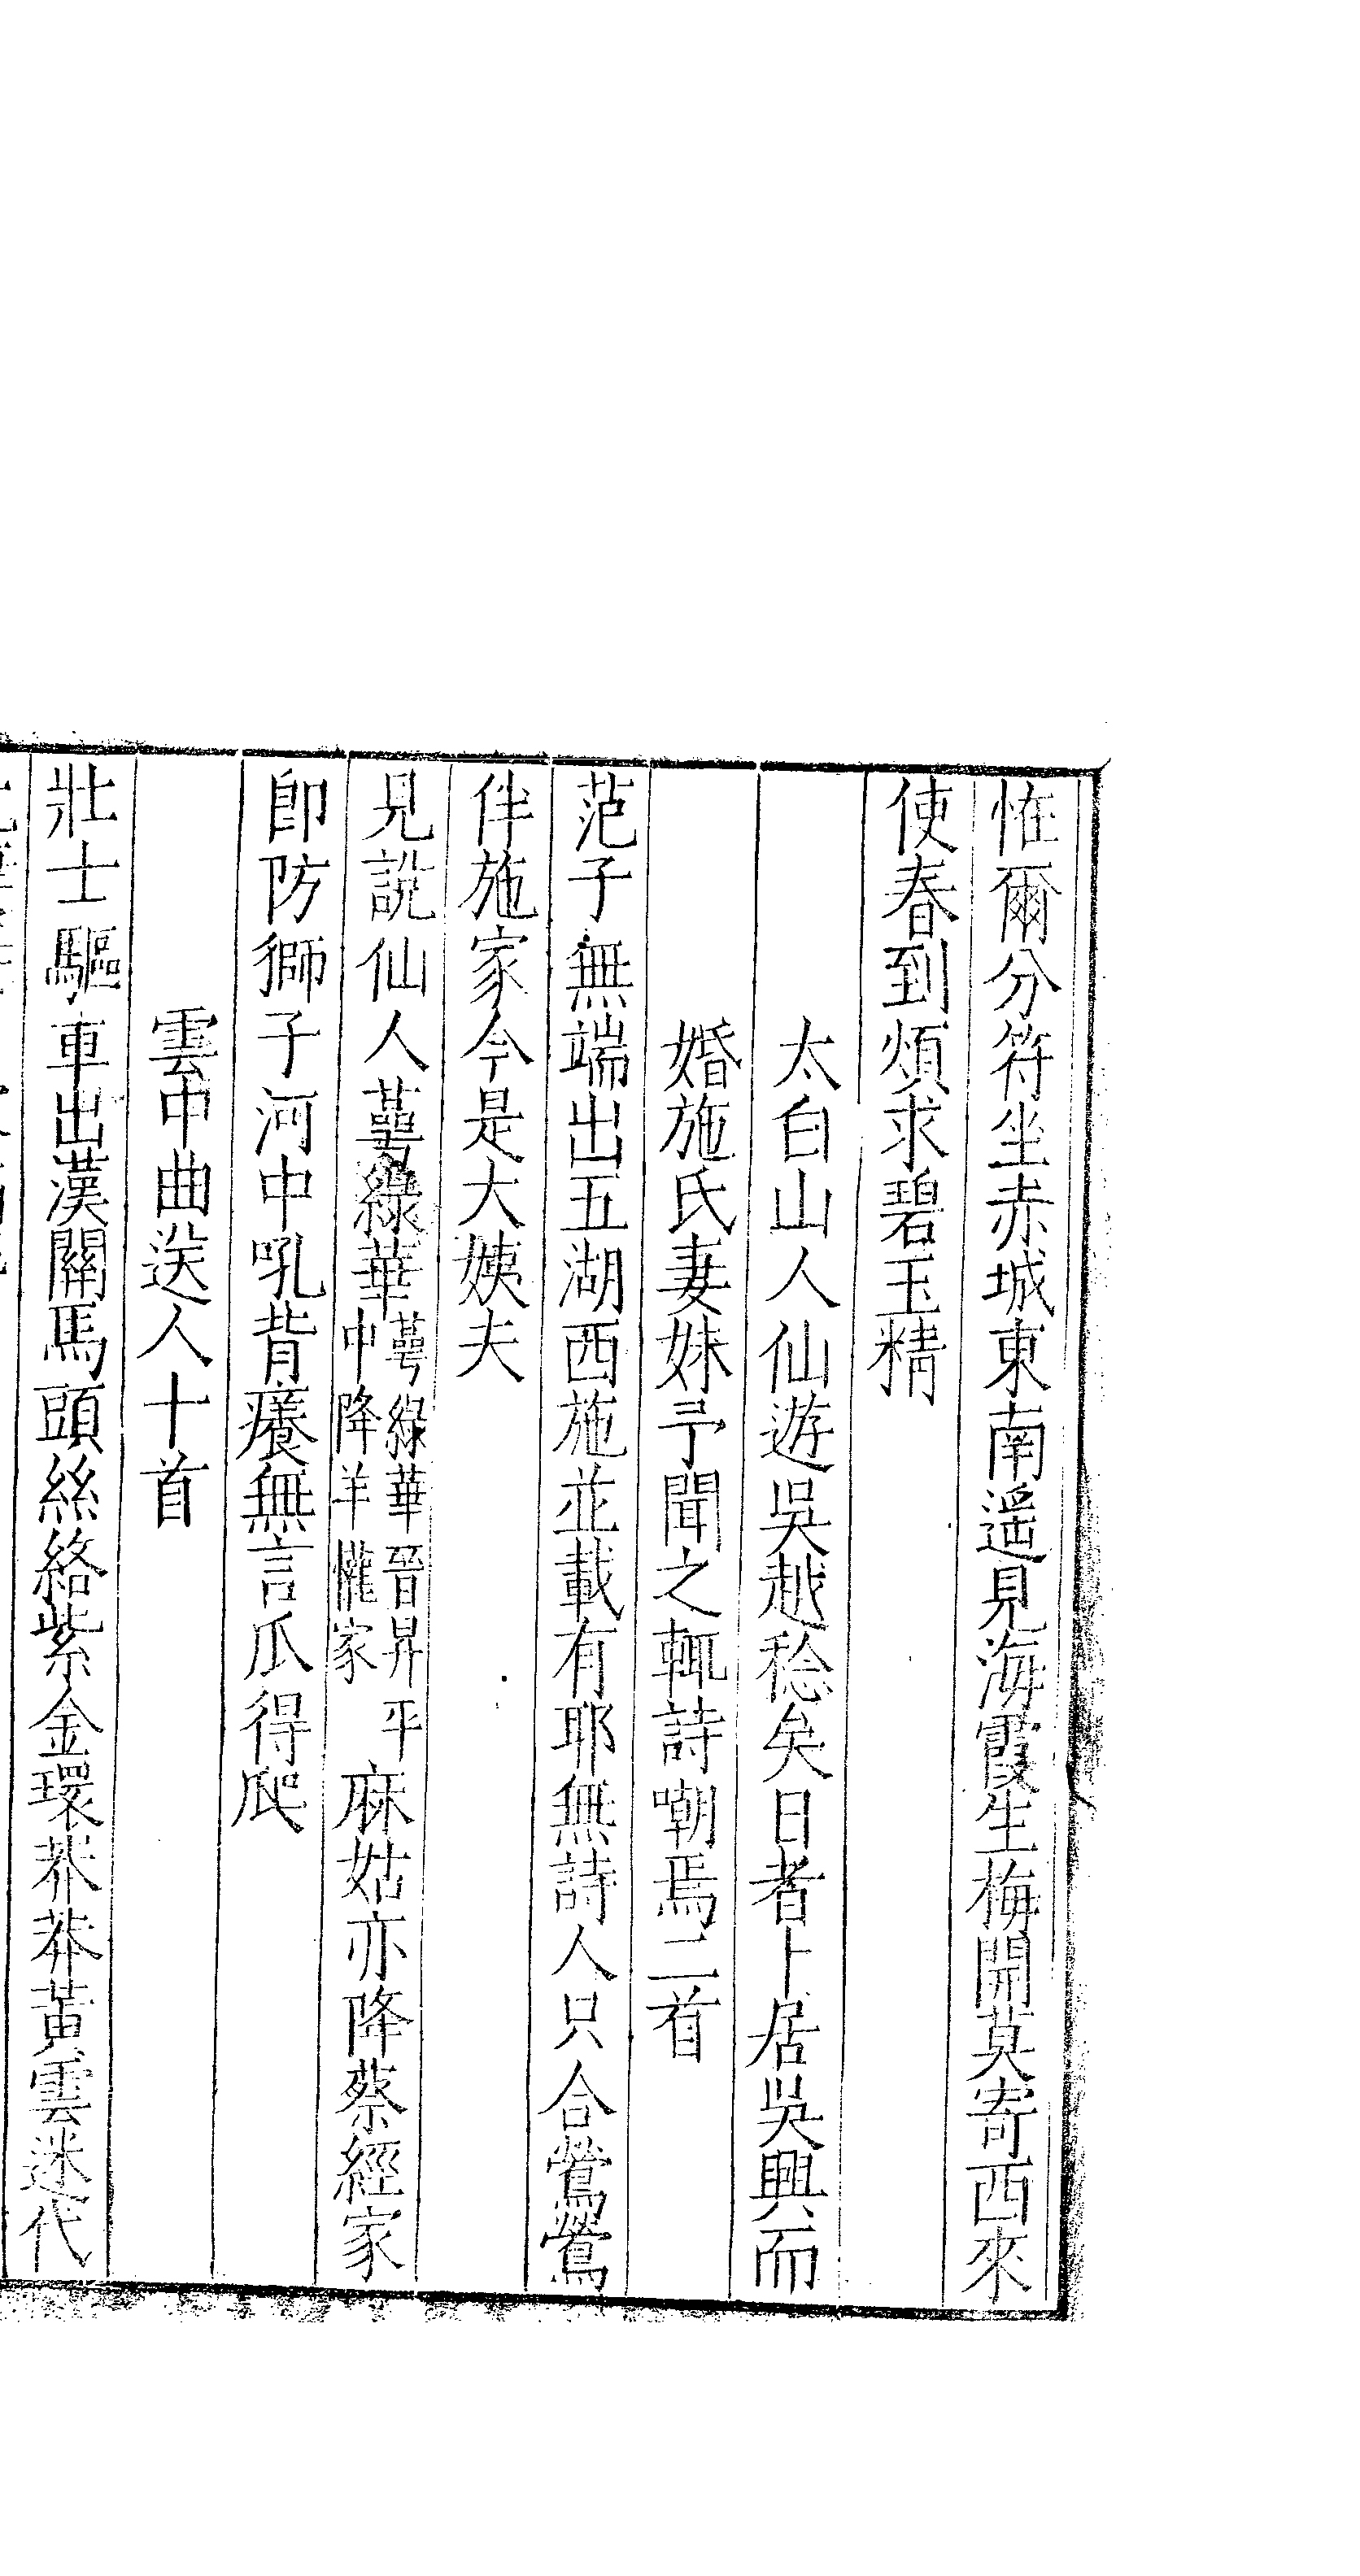 恠爾分符坐赤城東南遥見海霞生梅開莫寄西來
使春到煩求碧玉精
太白山人仙遊吳越稔矣日者卜居吳興而
婚施氏妻妹予聞之輒詩嘲焉二首
范子無端出五湖西施並載有耶無詩人只合鶯鶯
伴施家今是大姨夫
見說仙人萼綠華萼綠華晉昇平中降羊懽家麻姑亦降蔡經家
卽防獅子河中吼背癢無言爪得爬
雲中曲送人十首
壯士驅車出漢關馬頭絲絡紫金環莽莽黃雲迷代